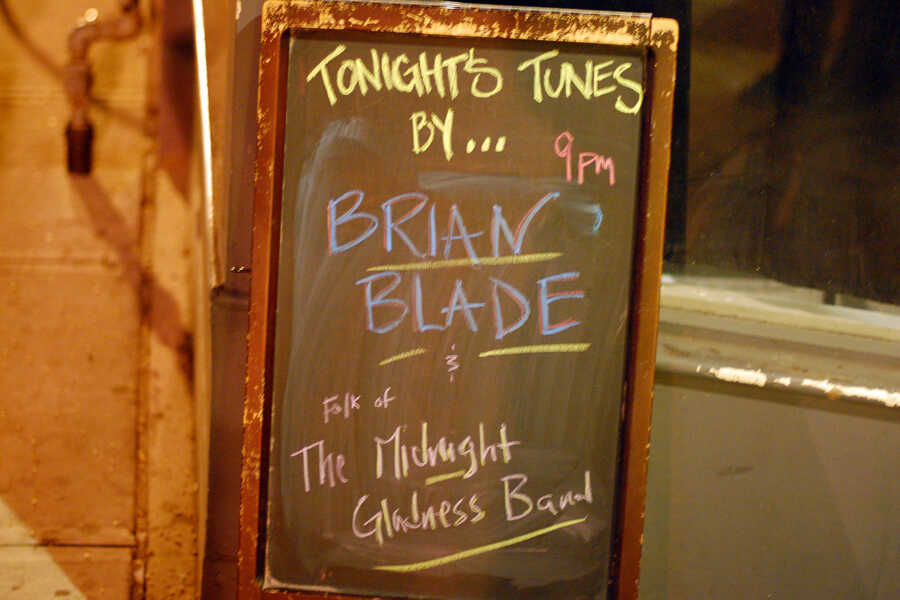 TONIGHT'S TUNES
BY...
9pm
BRIAN
BLADE
&
Folk of
The Midnight
Gladness Band